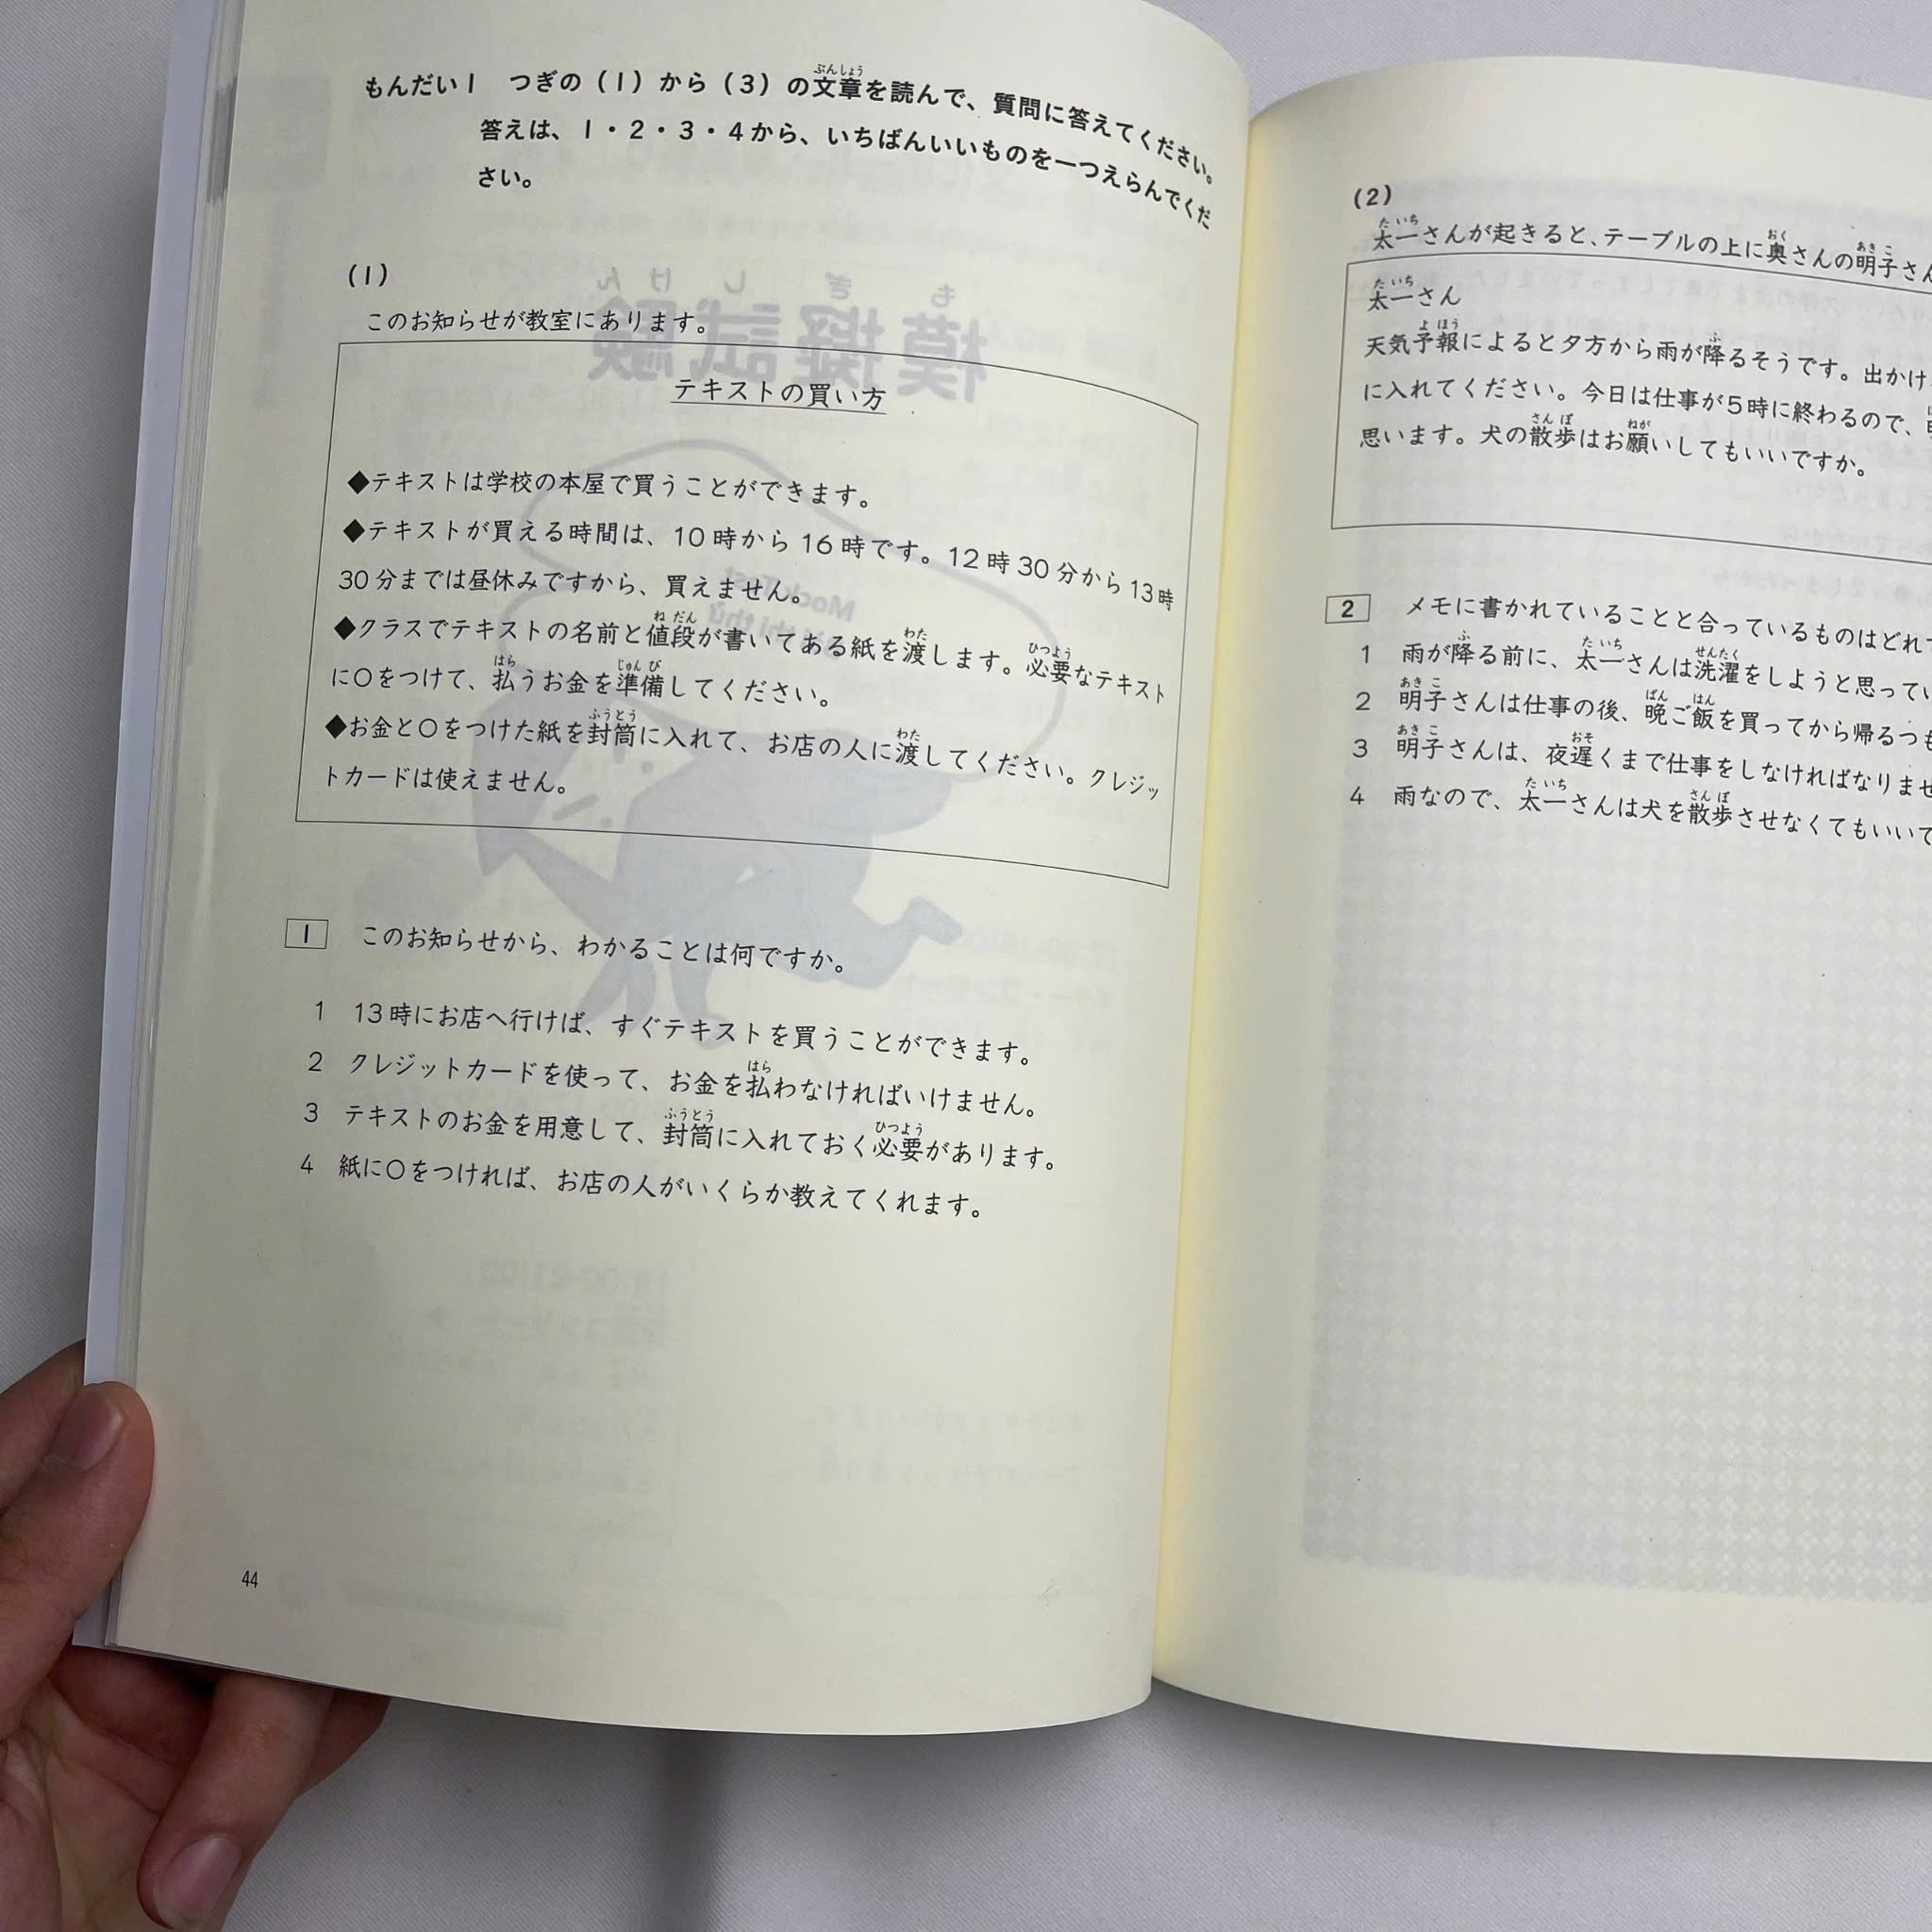 もんだい1　つぎの（1）から（3）の文章を読んで、質問に答えてください。
答えは、1・2・3・4から、いちばんいいものを一つえらんでくだ
さい。
（1）
このお知らせが教室にあります。
テキストの買い方
◆テキストは学校の本屋で買うことができます。
◆テキストが買える時間は、10時から16時です。12時30分から13時
30分までは昼休みですから、買えません。
◆クラスでテキストの名前と値段が書いてある紙を渡します。必要なテキスト
に○をつけて、払うお金を準備してください。
◆お金と○をつけた紙を封筒に入れて、お店の人に渡してください。クレジッ
トカードは使えません。
1　このお知らせから、わかることは何ですか。
1　13時にお店へ行けば、すぐテキストを買うことができます。
2　クレジットカードを使って、お金を払わなければいけません。
3　テキストのお金を用意して、封筒に入れておく必要があります。
4　紙に○をつければ、お店の人がいくらか教えてくれます。
44
（2）
太一さんが起きると、テーブルの上に奥さんの明子さん
太一さん
天気予報によると夕方から雨が降るそうです。出かけ
に入れてください。今日は仕事が5時に終わるので、
思います。犬の散歩はお願いしてもいいですか。
2　メモに書かれていることと合っているものはどれ
1　雨が降る前に、太一さんは洗濯をしようと思って
2　明子さんは仕事の後、晩ご飯を買ってから帰るつも
3　明子さんは、夜遅くまで仕事をしなければなりませ
4　雨なので、太一さんは犬を散歩させなくてもいい